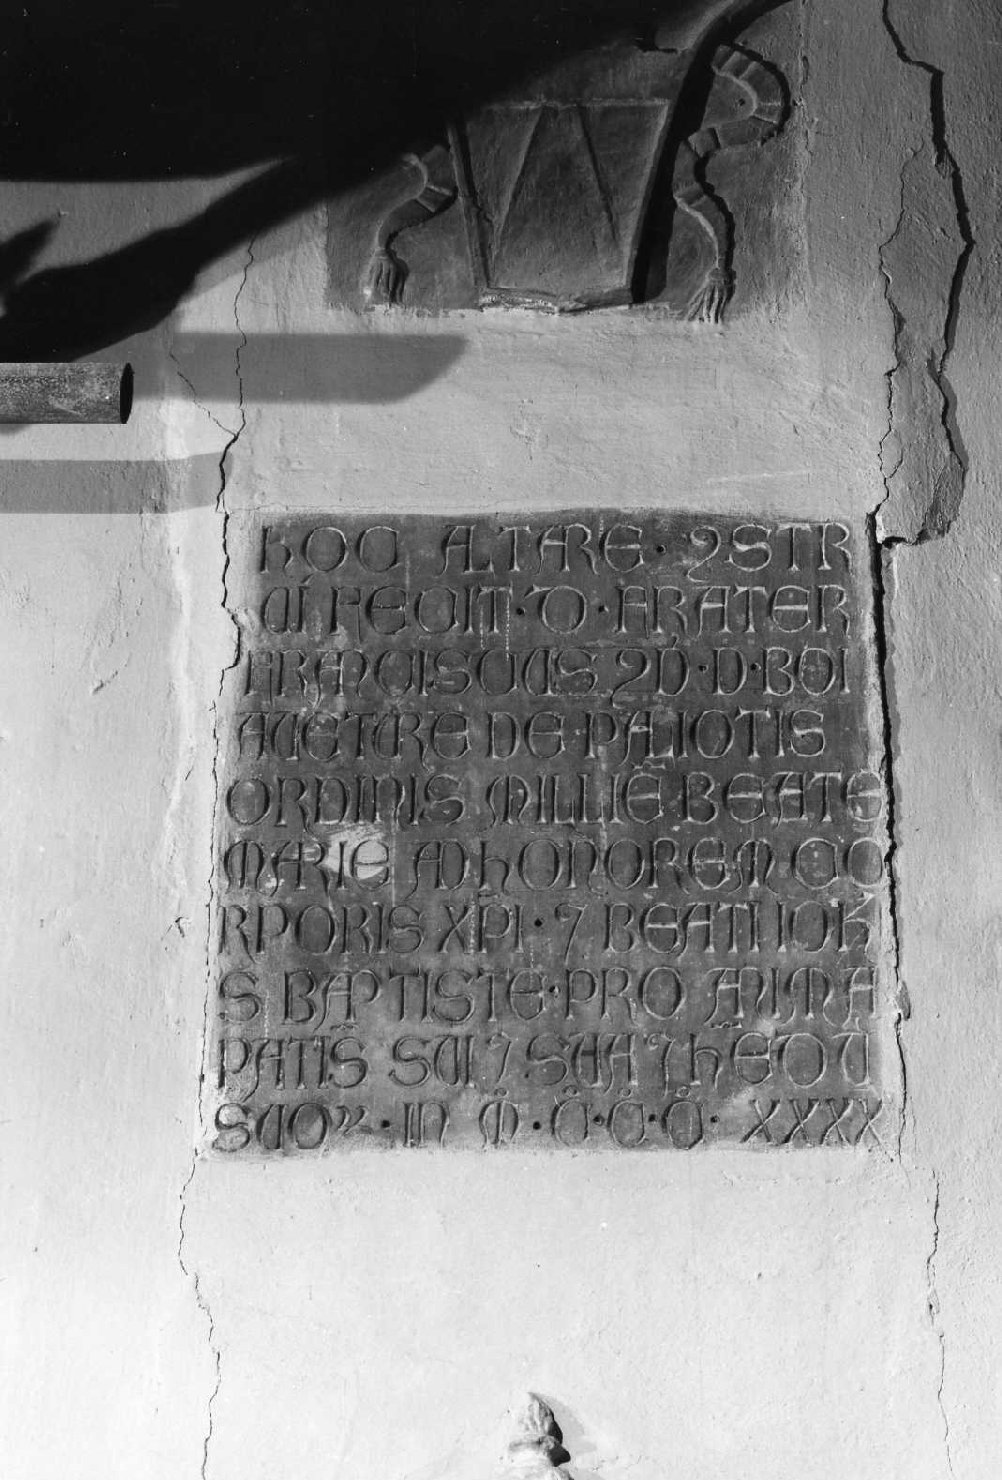 hOC ALTARE · 9STR
UI FECIT · DO · FRATER
FRANCISCUS 2D · D · BON
AUETURE DE PALIOTIS
ORDINIS MILIE BEATE
MARIE AD hONOREM CO
RPORIS XPI · 7 BEATI IOh
S BAPTISTE · PRO ANIMA
PATIS SUI 7 SUA 7 hEDU
SUOℽ · IN M · C C C · XXXX